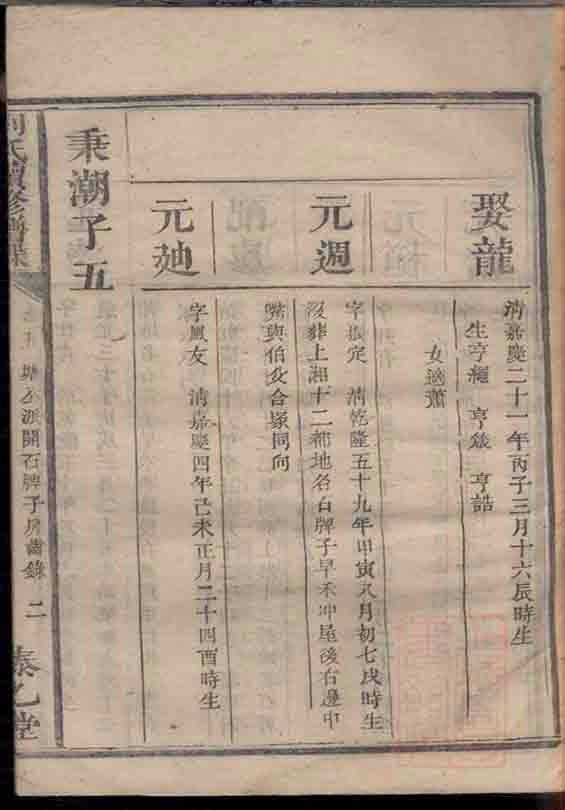 娶龍
清嘉慶二十一年丙子三月十六辰時生
生亨繩 亨錂 亨誥
女適蕭
元週
字振定 清乾隆五十九年甲寅八月初七戌時生
沒葬上湘十二都地名石牌子早禾冲尾後右邊中
嘴與伯父合塚同向
元廸
字鳳友 清嘉慶四年己未正月二十四酉時生
秉潮子五
劉氏續修譜
派開石牌子房齒錄 二
泰乙堂